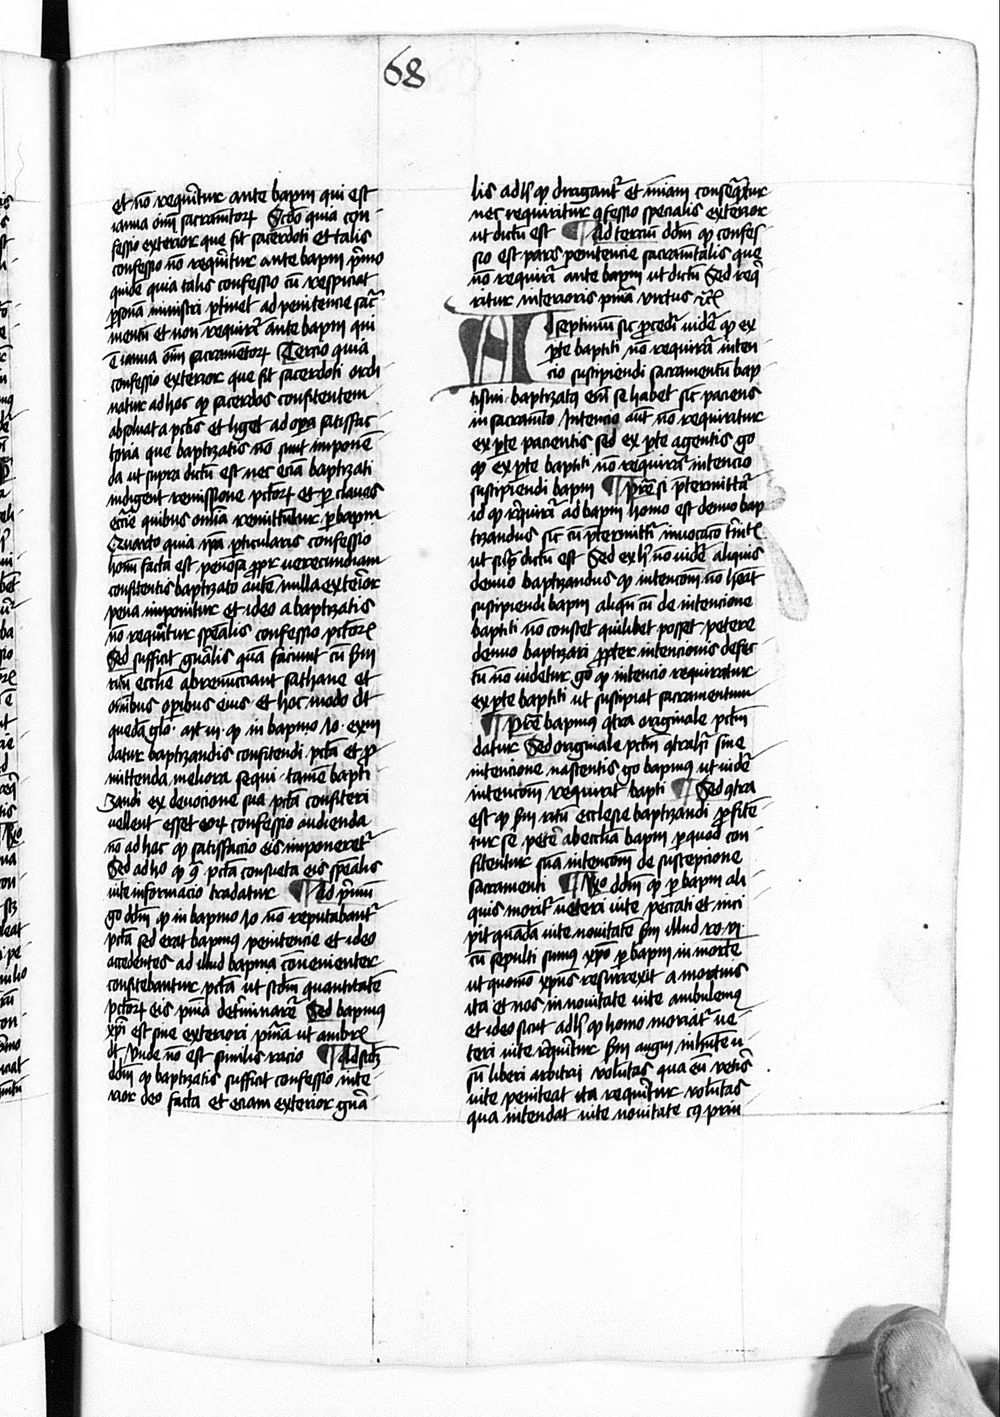 68
et nō requiritur ante bapm qui est
ianua oīm sacramētorꝝ Scdo quia con
fessio exterior que fit sacerdoti et talis
confessio nō requiritur ante bapm primo
quidē quia talis confessio cū respiciat
psonā ministri ptinet ad penitencie sacr̄
mentū et non requirit̄ ante bapm qui
ē ianua oīm sacramētorꝝ Tercio quia
confessio exterior que fit sacerdoti ordi
natur ad hoc qꝫ sacerdos confitentem
absoluat a pctis et liget ad opa satiffac
toria que baptizatis nō sunt imponē
da ut supra dictū est nec eciā baptizati
indigent remissione pctorꝝ et p claues
eccīe quibus omīa remittūtur p bapm
Quarto quia ipa pticularis confessio
homī facta est penosa ppr verecundiam
confitentis baptizato autē nulla exterior
pena imponitur et ideo a baptizatis
nō requiritur spēalis confessio pctorꝝ
Sed sufficit gnālis quā faciunt cū scdm
ritū ecclie abrenunciant sathane et
omībus opibus eius et hoc modo dt
quedā glo. mt. iij. qꝫ in bapmo Io. exm̄
datur baptizandis confitendi pctā et pro
mittenda meliora sequi. tamē bapti
zandi ex devocione sua pctā confiteri
vellent esset eorꝝ confessio audienda
nō ad hoc qꝫ satisfactio eis imponeret̄
Sed ad ho qꝫ q̄ pctā consueta eis spēalis
vite informacio tradatur ¶ Ad primū
go ddm̄ qꝫ in bapmo Io nō reputabant̄
pctā sed erat bapmꝰ penitencie et ideo
accedentes ad illud bapma cōvenienter
confitebantur pctā ut scdm quantitatē
pctorꝝ eis pniā determinarē Sed bapmus
xpi est sine exteriori pniā ut ambrꝰ
dt Vnde nō est similis racio ¶ Ad scdm
ddm̄ qꝫ baptizatis sufficit confessio inte
rior deo facta et eciam exterior gnā
lis ad hꝫ qꝫ dirigant̄ et miam consequātur
nec requiritur cōfessio specialis exterior
ut dictū est ¶ Ad terciū ddm̄ qꝫ confes
sio est pars penitencie sacramētalis que
nō requirit̄ ante bapm ut dictū Sed req̄
ritur interioris pniā virtus ⁊c̄
Ad septimū sic procedit̄ videt̄ qꝫ ex
pte baptiti nō requirat̄ inten
cio suscipiendi sacramentū bap
tismi. baptizatꝰ em̄ se habet sic paciens
in sacramēto Intencio aut̄ nō requiritur
ex pte pacientis sed ex pte agentis go
qꝫ ex pte baptiti nō requirat̄ intencio
suscipiendi bapm ¶ Pret̄ si ptermittat̄
id qꝫ requirit̄ ad bapm homo est denuo bap
tizandus sic cū ptermittit̄ invocacio trinit̄
ut supra dictū est Sed ex hꝫ nō videt̄ aliquis
denuo baptizandus qꝫ intencōem nō habeat
suscipiendi bapm aliqn̄ cū de intencione
baptiti nō constet quilibet posset petere
denuo baptizari propter intencionis defec
tū nō videtur go qꝫ intencio requiratur
ex pte baptiti ut suscipiat sacramentum
¶ Pret̄ bapmus cōtra originale pctm
datur Sed originale pctm cōtrahit̄ sine
intencione nascentis go bapmꝰ ut videt̄
intencōem requirit bapti ¶ Sed cōtra
est qꝫ scdm ritū ecclesie baptizandi profitē
tur se petere ab ecclīa bapm p quod con
fitentur suā intencōem de suscepcione
sacramenti ¶ Rꝰo ddm̄ qꝫ p bapm ali
quis morit̄ veteri vite peccati et inci
pit quādā vite novitatē scdm illud ro. vi.
cū sepulti sumꝰ xpo p bapm in mortē
ut quomō xpus resurrexit a mortuis
ita et nos in novitate vite ambulemꝰ
et ideo sicut ad hꝫ qꝫ homo moriat̄ ve
teri vite requiritur scdm augꝰ in hnte v
sū liberi arbitrii voluntas qua eū veteris
vite peniteat ita requiritur voluntas
qua intendat vite novitatē cꝰ prin